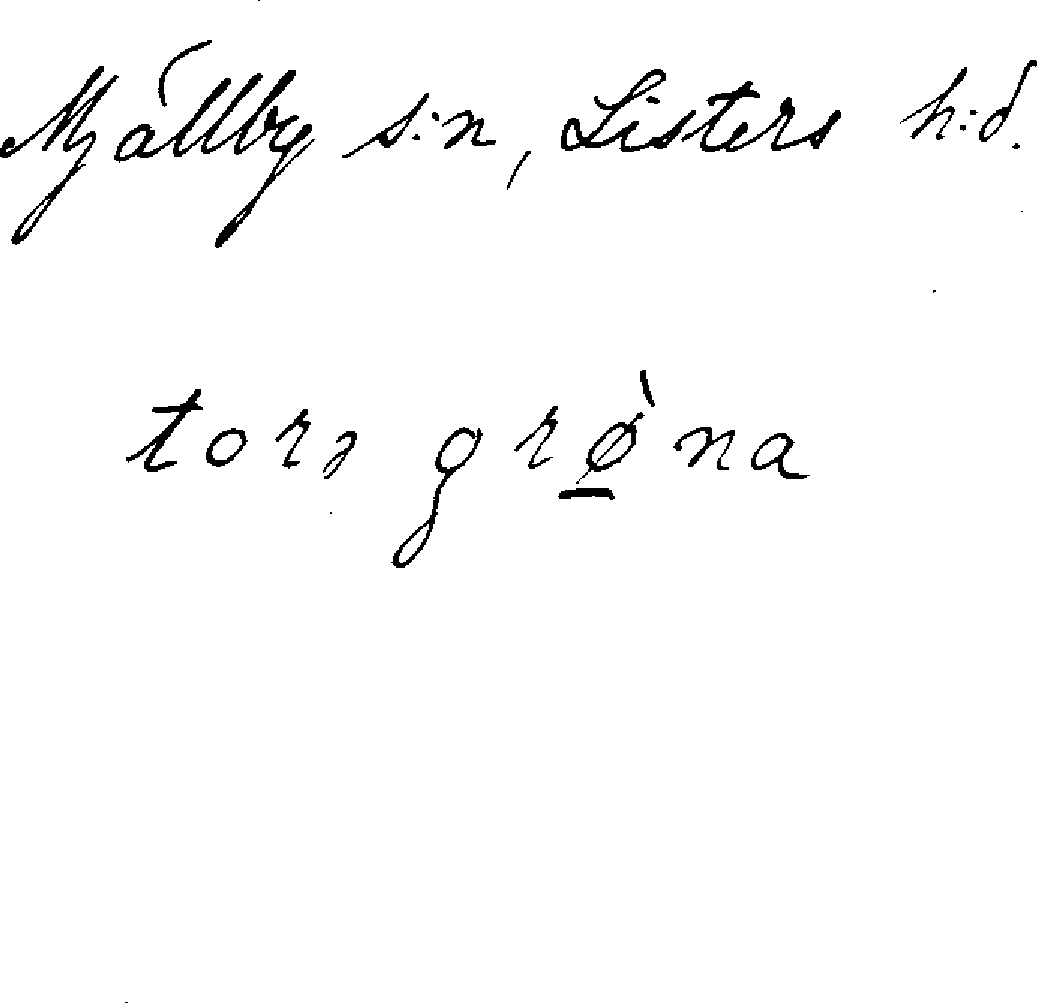 Mjällby s:n, Listers h:d.
torə grø̠̀na